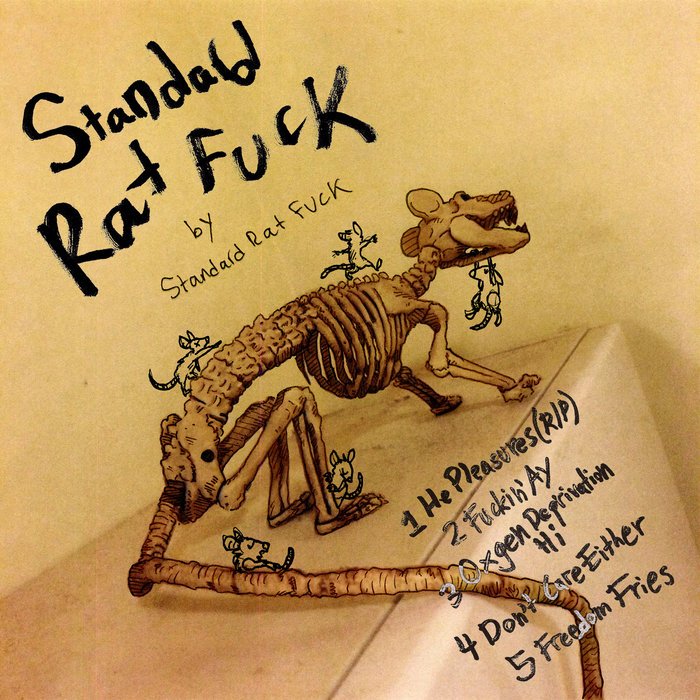 Standard
Rat Fuck
by
Standard Rat Fuck
1 He Pleasures (RIP)
2 Fuckin' Ay
3 Oxgen Deprivation
Hi
4 Don't Care Either
5 Freedom Fries